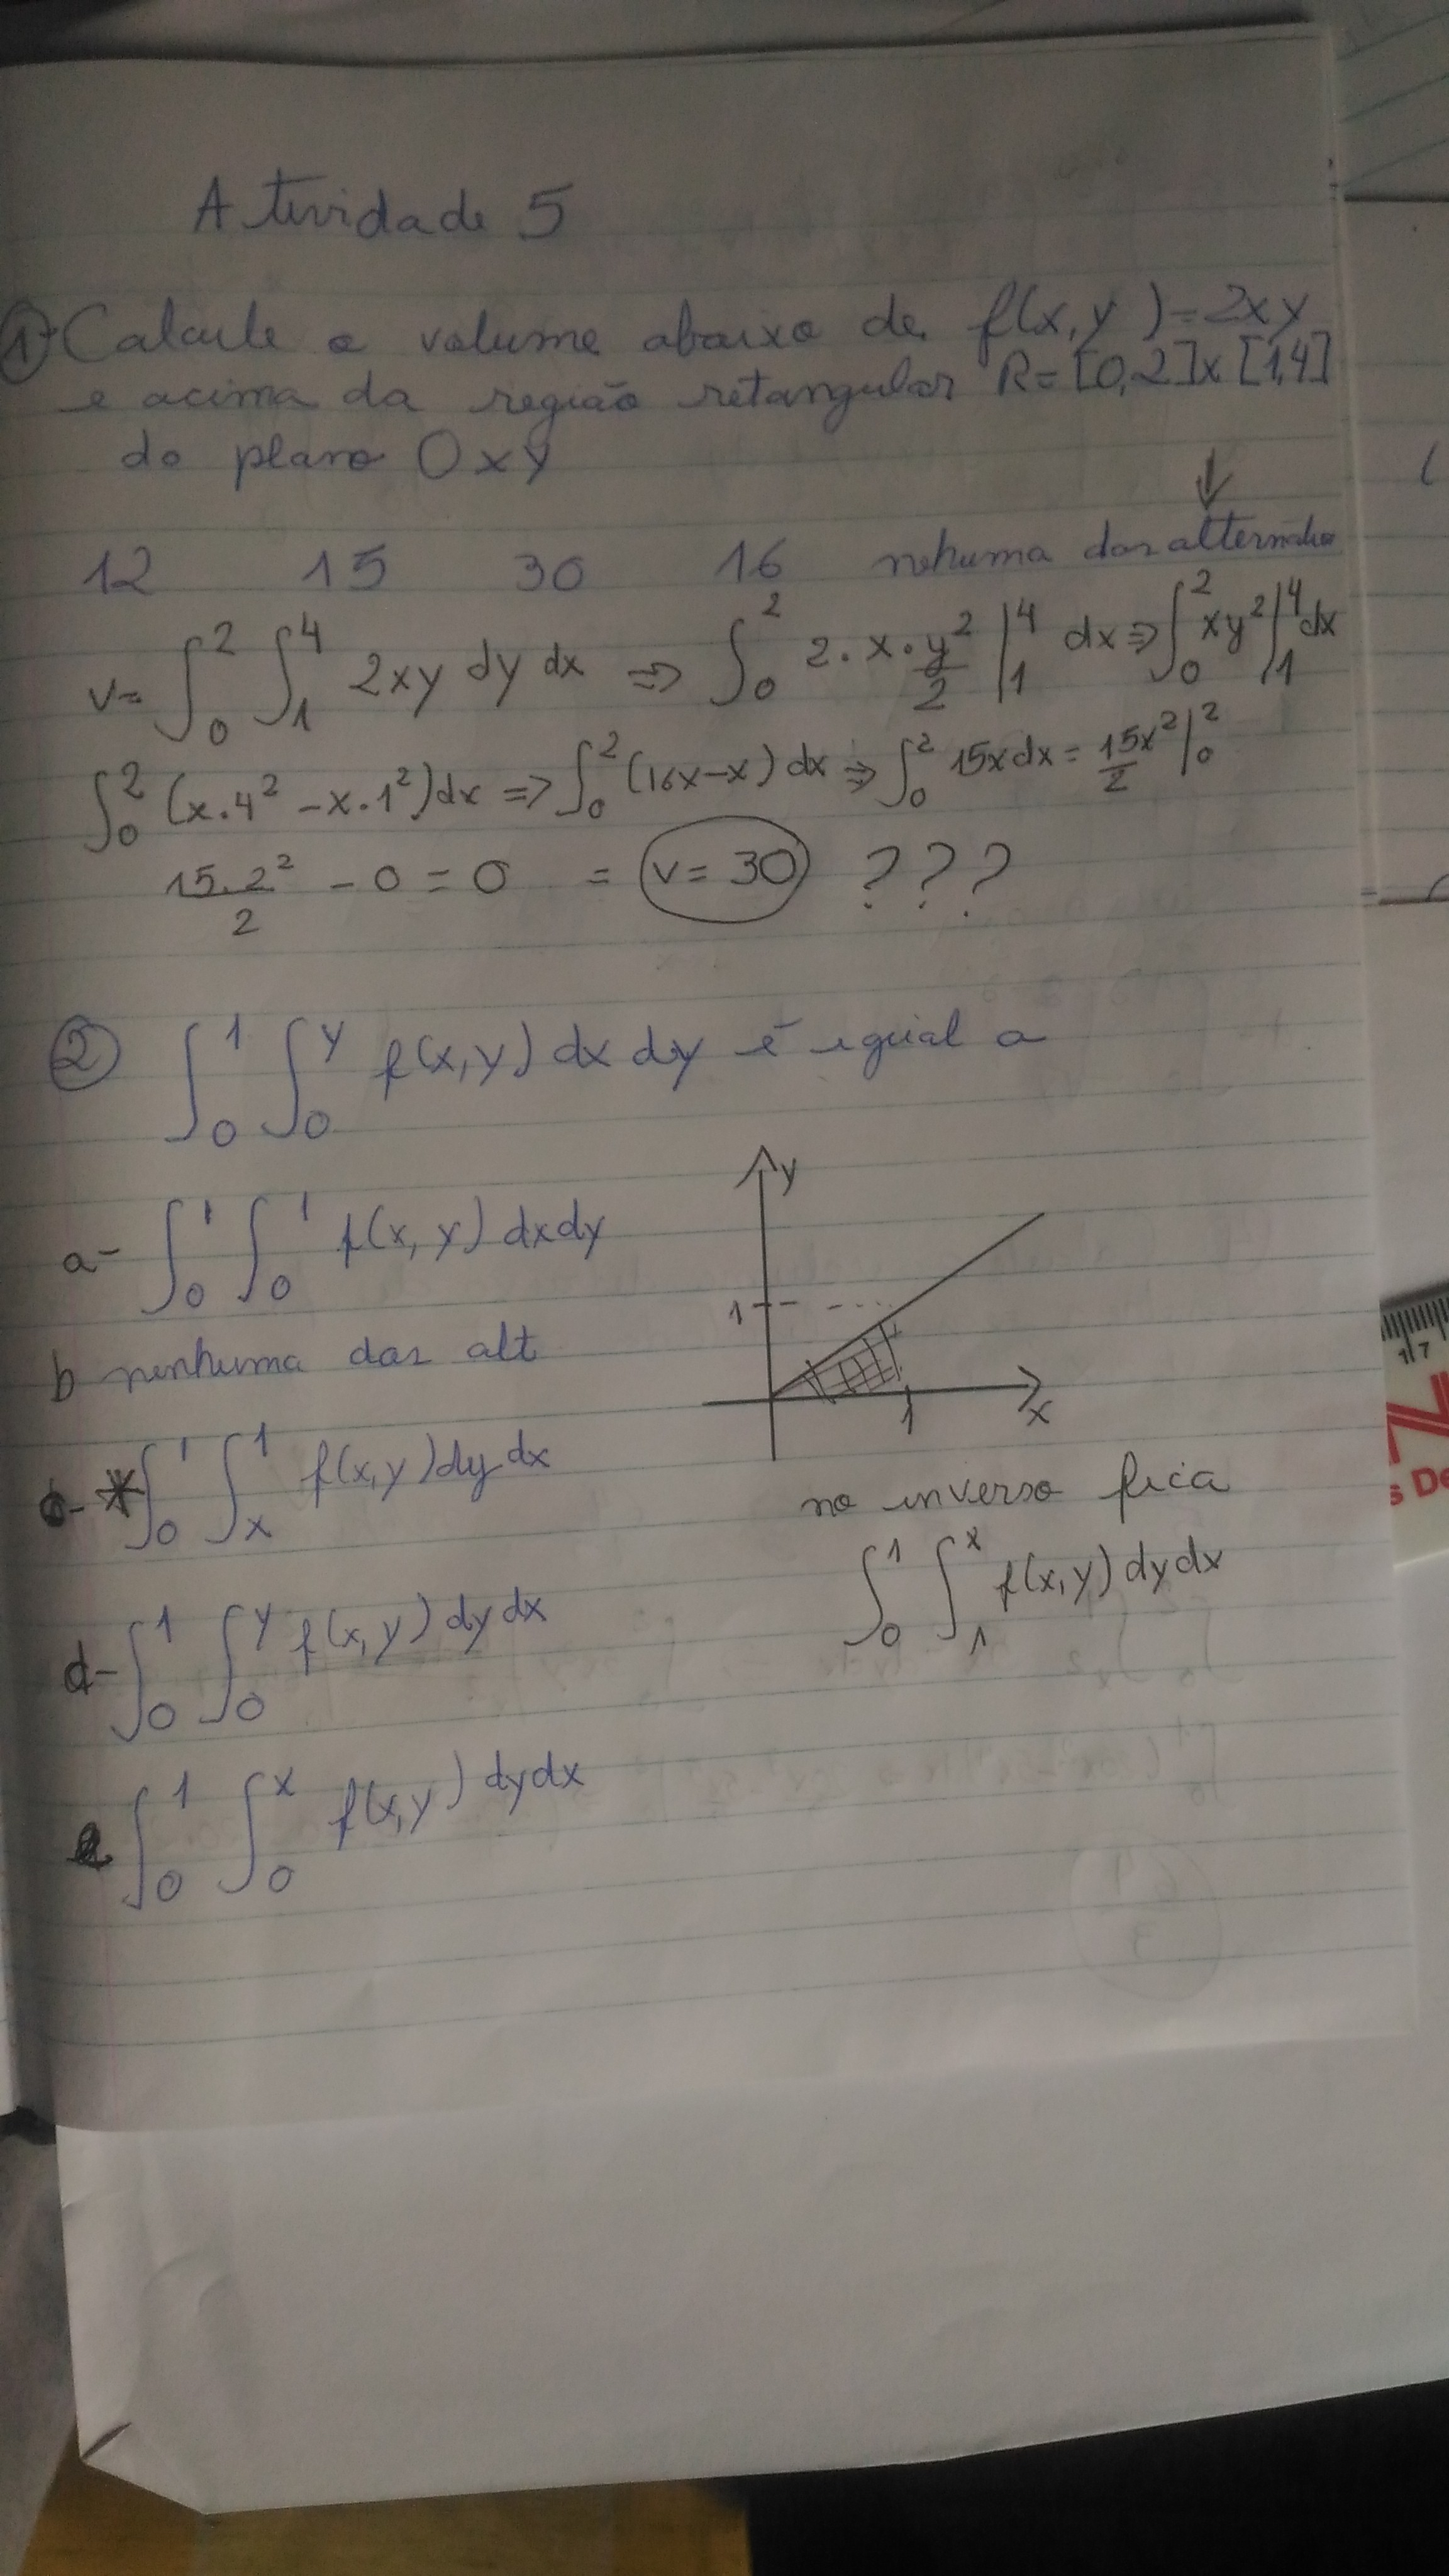 Atividade 5
① Calcule o volume abaixo de f(x,y)=2xy
e acima da região retangular R=[0,2]x[1,4]
do plano Oxy
↓
12 15 30 16 nehuma das alternativa
v= ∫₀² ∫₁⁴ 2xy dy dx ⇒ ∫₀² 2·x·y²/2 |₁⁴ dx ⇒ ∫₀² xy² |₁⁴ dx
∫₀² (x·4² – x·1²)dx ⇒ ∫₀² (16x–x) dx ⇒ ∫₀² 15x dx = 15x²/2 |₀²
15.2²/2 – 0 = 0 = v= 30 ???
② ∫₀¹ ∫₀^y f(x,y) dx dy é igual a
a- ∫₀¹ ∫₀¹ f(x,y) dxdy
b nenhuma das alt
c- * ∫₀¹ ∫ₓ¹ f(x,y) dy dx
d- ∫₀¹ ∫₀^y f(x,y) dy dx
e ∫₀¹ ∫₀^x f(x,y) dydx
y
1
1
x
no inverso fica
∫₀¹ ∫₁^x f(x,y) dy dx
17
s De